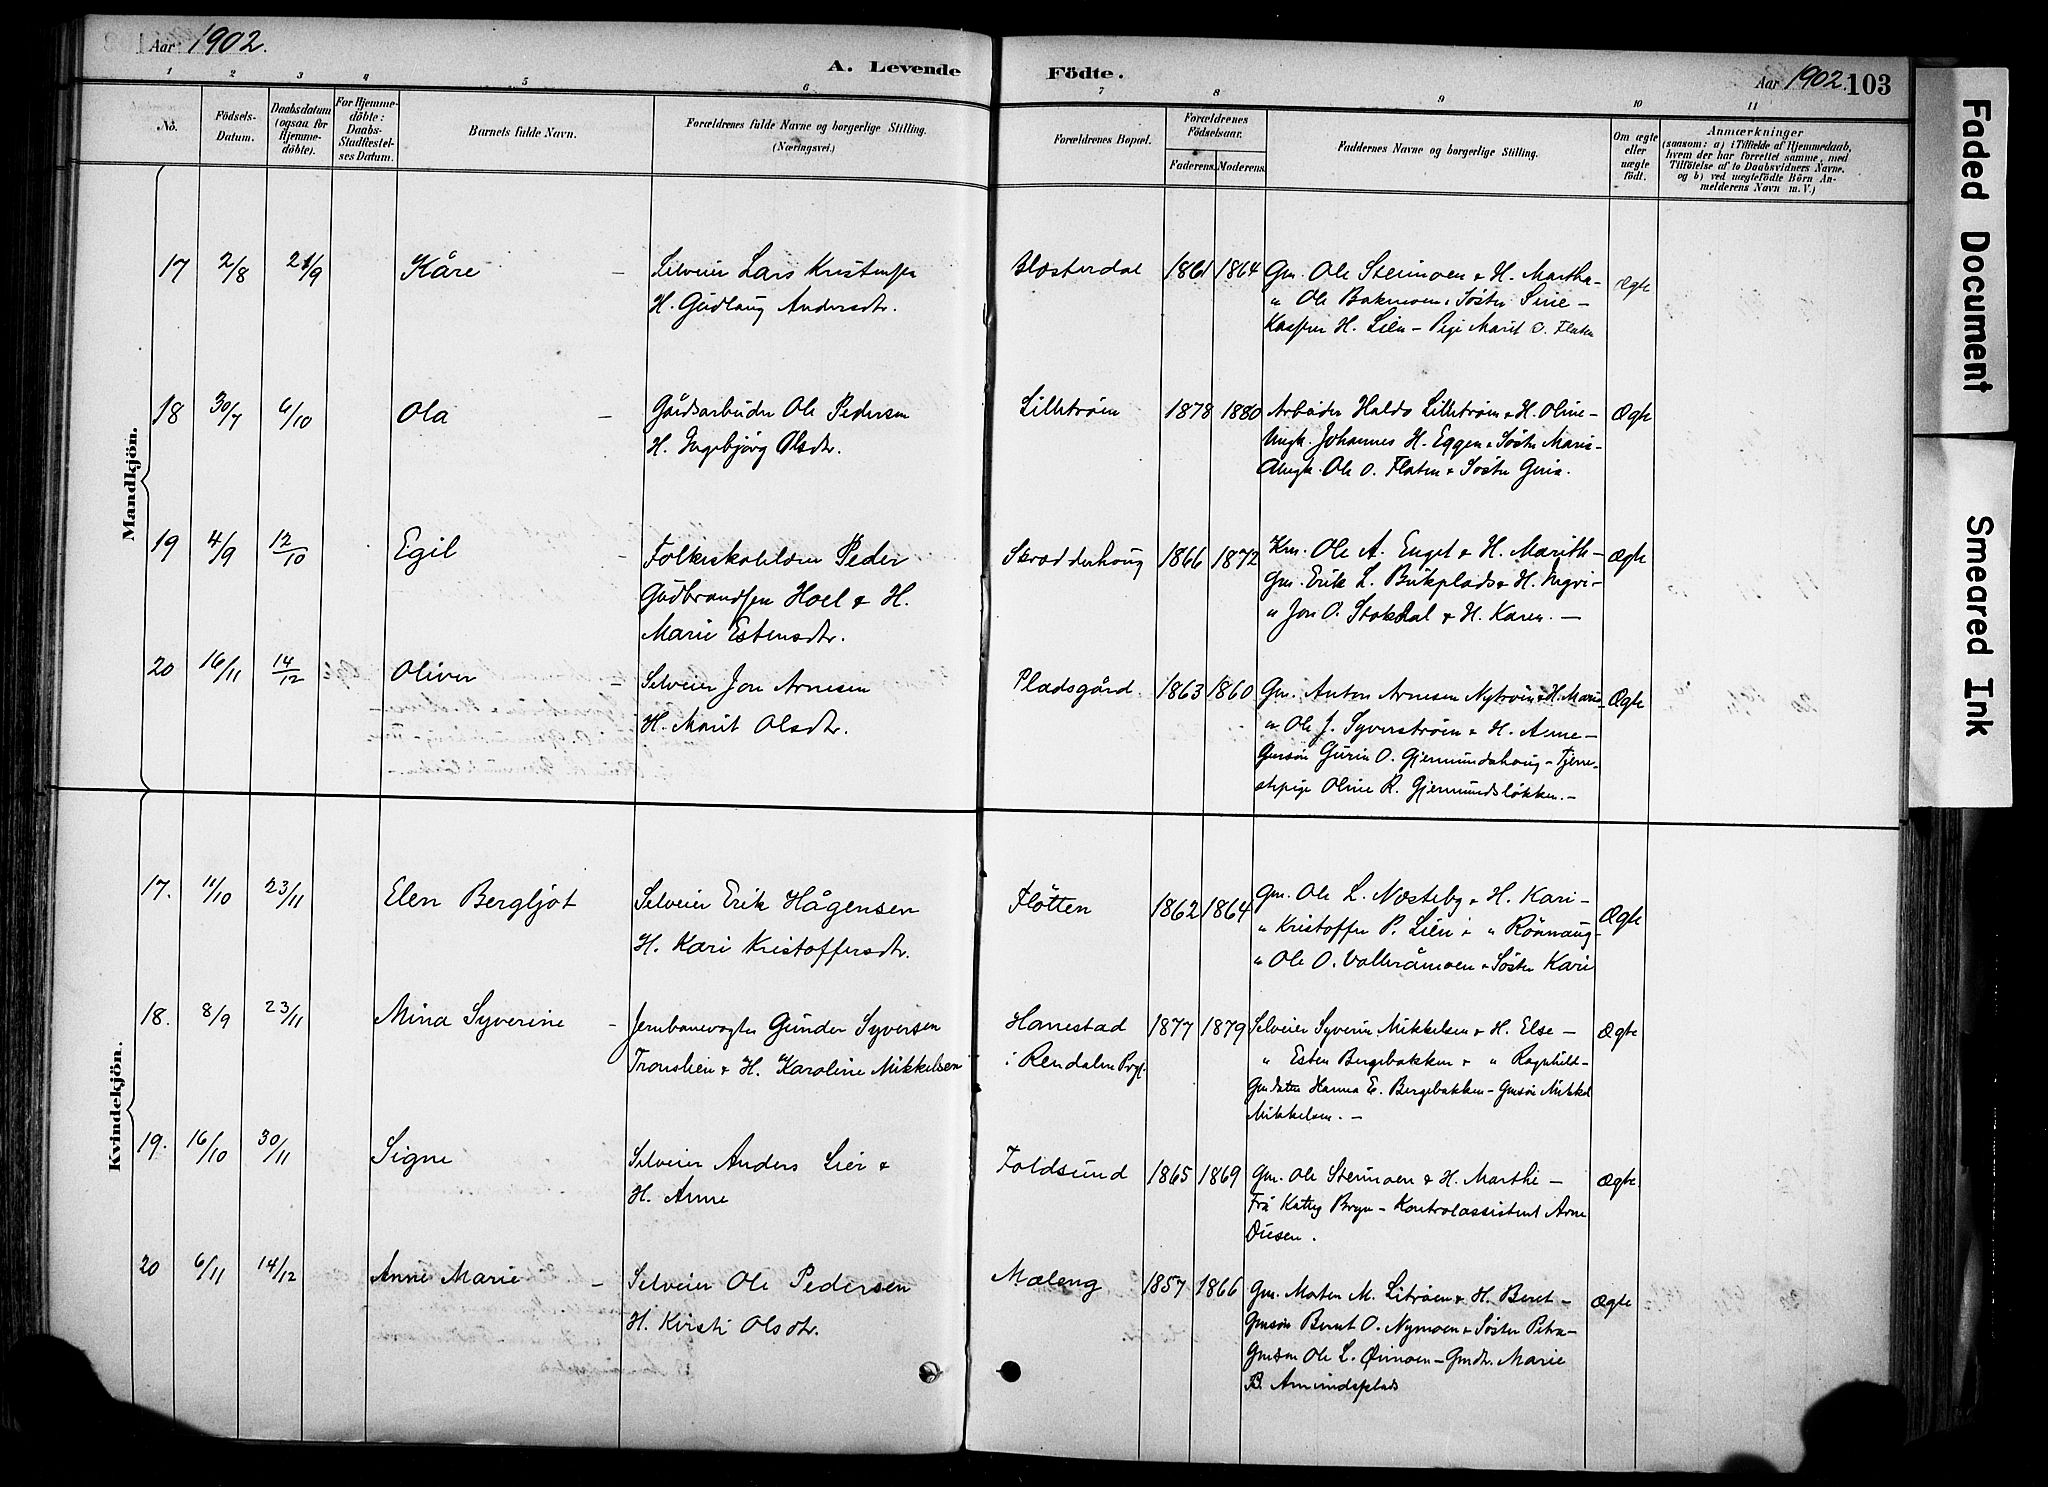 Aar 1902.
A. Levende Födte.
Aar 1902. 103
1 2 3 4 5 6 7 8 9 10 11
No.
Födsels-
Datum.
Daabsdatum
(ogsaa for
Hjemme-
döbte).
For Hjemme-
döbte:
Daabs-
Stadfæstel-
ses Datum.
Barnets fulde Navn.
Forældrenes fulde Navne og borgerlige Stilling.
(Næringsvei.)
Forældrenes Bopæl.
Forældrenes
Födselsaar.
Faderens. Moderens.
Faddernes Navne og borgerlige Stilling.
Om ægte
eller
uægte
födt.
Anmærkninger
(saasom: a) i Tilfælde af Hjemmedaab,
hvem der har forrettet samme, med
Tilföielse af to Daabsvidners Navne.
og b) ved uægtefödte Börn An-
melderens Navn m. V.)
Mandkjön.
17 2/8 21/9 Kåre – Selveier Lars Kristensen
H. Gudlaug Andersdtr.
1861 1864 Gm. Ole Steimoen & H. Martha-
" Ole Bakmoen, Søster Sine –
Kasper H. Lien – Pige Marit O. Flaten
Ægte
18 30/7 6/10 Ola – Gårdsarbeider Ole Pedersen
H. Ingebjørg Olsdtr.
Lillstrøm 1878 1880 Arbeider Haldo Lillstrøm & H. Oline –
Ungk. Johannes H. Eggen & Søster Marie-
Ungk. Ole O. Flaten & Søster Guria.
Ægte
19 4/9 12/10 Egil – Folkeskolelærer Peder
Gudbrandsen Hoel & H.
Marie Estensdtr.
Skrædderhoug 1866 1872 Km. Ole A. Enget & H. Marith –
Gm. Erik L. Bukplads & H. Ingri –
" Jon O. Stokdal & H. Karen. –
Ægte
20 16/11 14/12 Oliver – Selveier Jon Arnesen
H. Marit Olsdtr.
Pladsgård. 1863 1860 Gm. Anton Arnesen Nytrøen & H. Marie
" Ole J. Syverstrøen & H. Anne –
Gmsøn Gurin O. Gjermundshoug – Tjene-
stepige Oline R. Gjermundsløkken. –
Ægte
Kvindekjön.
17. 11/10 23/11 Elen Bergljot Selveier Erik Hågensen
H. Kari Kristoffersdtr.
Fløtten 1862 1864 Gm. Ole L. Næsteby & H. Kari –
" Kristoffer P. Lien & " Rønnaug –
" Ole O. Volleråmoen & Søster Kari
Ægte
18. 8/9 23/11 Mina Syverine – Jernbanevogter Gunder Syversen
Tronslien & H. Karoline Mikkelsen
Hanestad
i Rendalen Prgj.
1877 1879 Selveier Syverin Mikkelsen & H. Else –
" Esten Bergebakken & " Ragnhild –
Gmdatter Hanna E. Bergebakken – Gmsøn Mikkel
Mikkelsen. –
Ægte
19. 16/10 30/11 Signe Selveier Anders Lier &
H. Anne
Foldsund 1865 1869 Gm. Ole Steimoen & H. Marthe –
Frk Kathy Bryn – Kontrolassistent Arne
Ousen.
Ægte.
20 6/11 14/12 Anne Marie – Selveier Ole Pedersen
H. Kirsti Olsdtr.
Mæleng 1857 1866 Gm. Morten M. Litrøen & H. Beret –
Gmsøn Bernt O. Nymoen & Søster Petra –
Gmsøn Ole L. Øimoen – Gmdtr. Marie
B. Amundsplads
Ægte
Faded Document
Smeared Ink